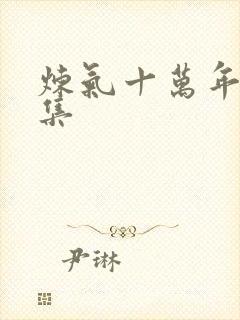 煉氣十萬年
集
尹琳